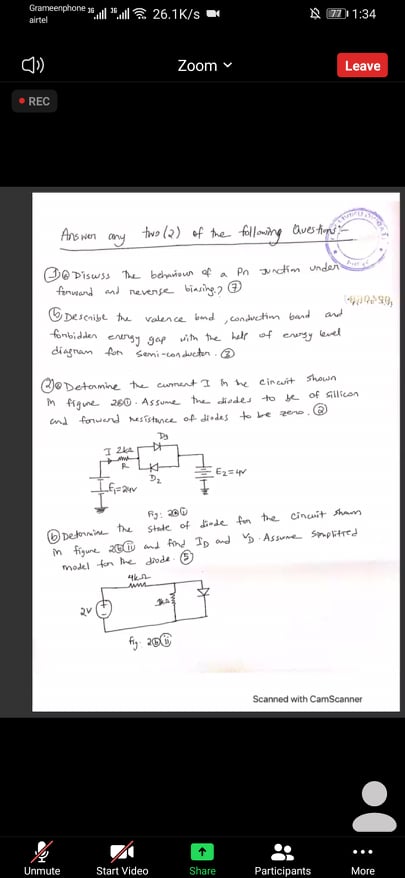 Grameenphone 3G 3G 26.1K/s 77 1:34
airtel
Zoom Leave
REC
Answer any two(2) of the following Questions:-
1) a) Discuss The behaviour of a Pn Junction under
forward and reverse biasing.? 7
b) Describe the valence band, conduction band and
forbidden energy gap with the help of energy level
diagram for semi-conductor.
2) a) Determine the current I in the circuit shown
in figure 2a i. Assume the diodes to be of sillicon
and forward resistance of diodes to be zero.
I 2kΩ
R
D2
E1=24V
E2=4V
Fig: 2a i
b) Determine the state of diode for the circuit shown
in figure 2b ii and find ID and VD. Assume simplified
model for the diode. 5
4kΩ
2V
Fig. 2b ii
Scanned with CamScanner
Unmute Start Video Share Participants More